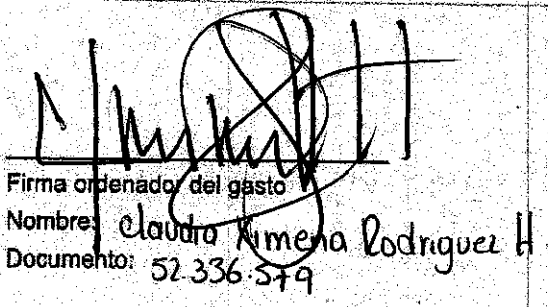 Firma ordenador del gasto
Nombre: Claudia Ximena Rodriguez H
Documento: 52.336.579